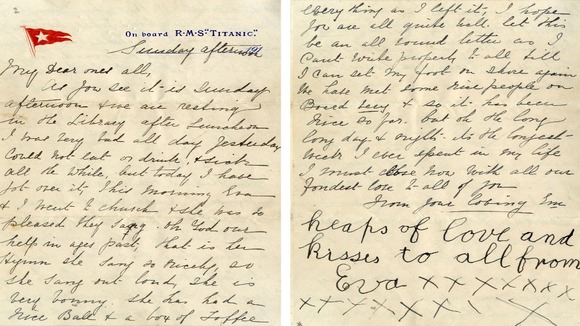 On board R·M·S "TITANIC."
Sunday afternoon 191
My Dear ones all,
As you see it is Sunday
afternoon & we are resting
in the Library after Luncheon
I was very bad all day yesterday
Could not eat or drink, & sick
all the while, but today I have
got over it, This morning Eva
& I went to church & she was so
pleased they sang Oh God our
help in ages past, that is her
Hymn she sang so nicely, so
she sang out loud, she is
very bonny. She has had a
nice Ball & a box of Toffee
everything as I left it, I hope
you are all quite well. let this
be an all round letter as I
Cant write properly to all till
I can set my foot on shore again
We have met some nice people on
Board & so it has been
nice so far. but oh the long
long days & nights. its the longest
I ever spent in my life
I must close now with all our
fondest love to all of you
From your loving
heaps of love and
kisses to all from
Eva x x x x x x x
x x x x x x x x